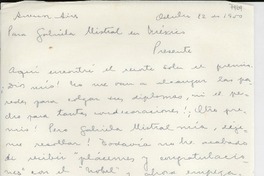 Buenos Aires Octubre 12 de 1950
Para Gabriela Mistral en México
Presente
Aquí encontré el recorte sobre el premio
¡Dios mío! No me van a alcanzar las pa
redes para colgar sus diplomas, ni el pe
cho para tantas condecoraciones! ¡Otro pre
mio! Pero Gabriela Mistral mía, deje
me resollar! Todavía no he acabado
de recibir plácemes y congratulacio
nes con el "Nobel" y ahora empiezan